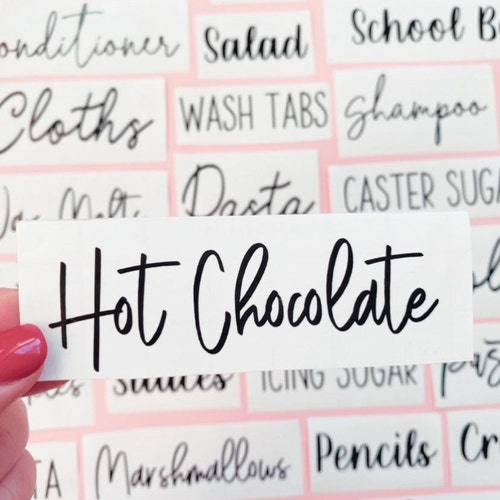 Conditioner
Salad
School B
Cloths
WASH TABS
Shampoo
Wax Melt
Pasta
CASTER SUGA
Hot Chocolate
Sauces
ICING SUGAR
Marshmallows
Pencils